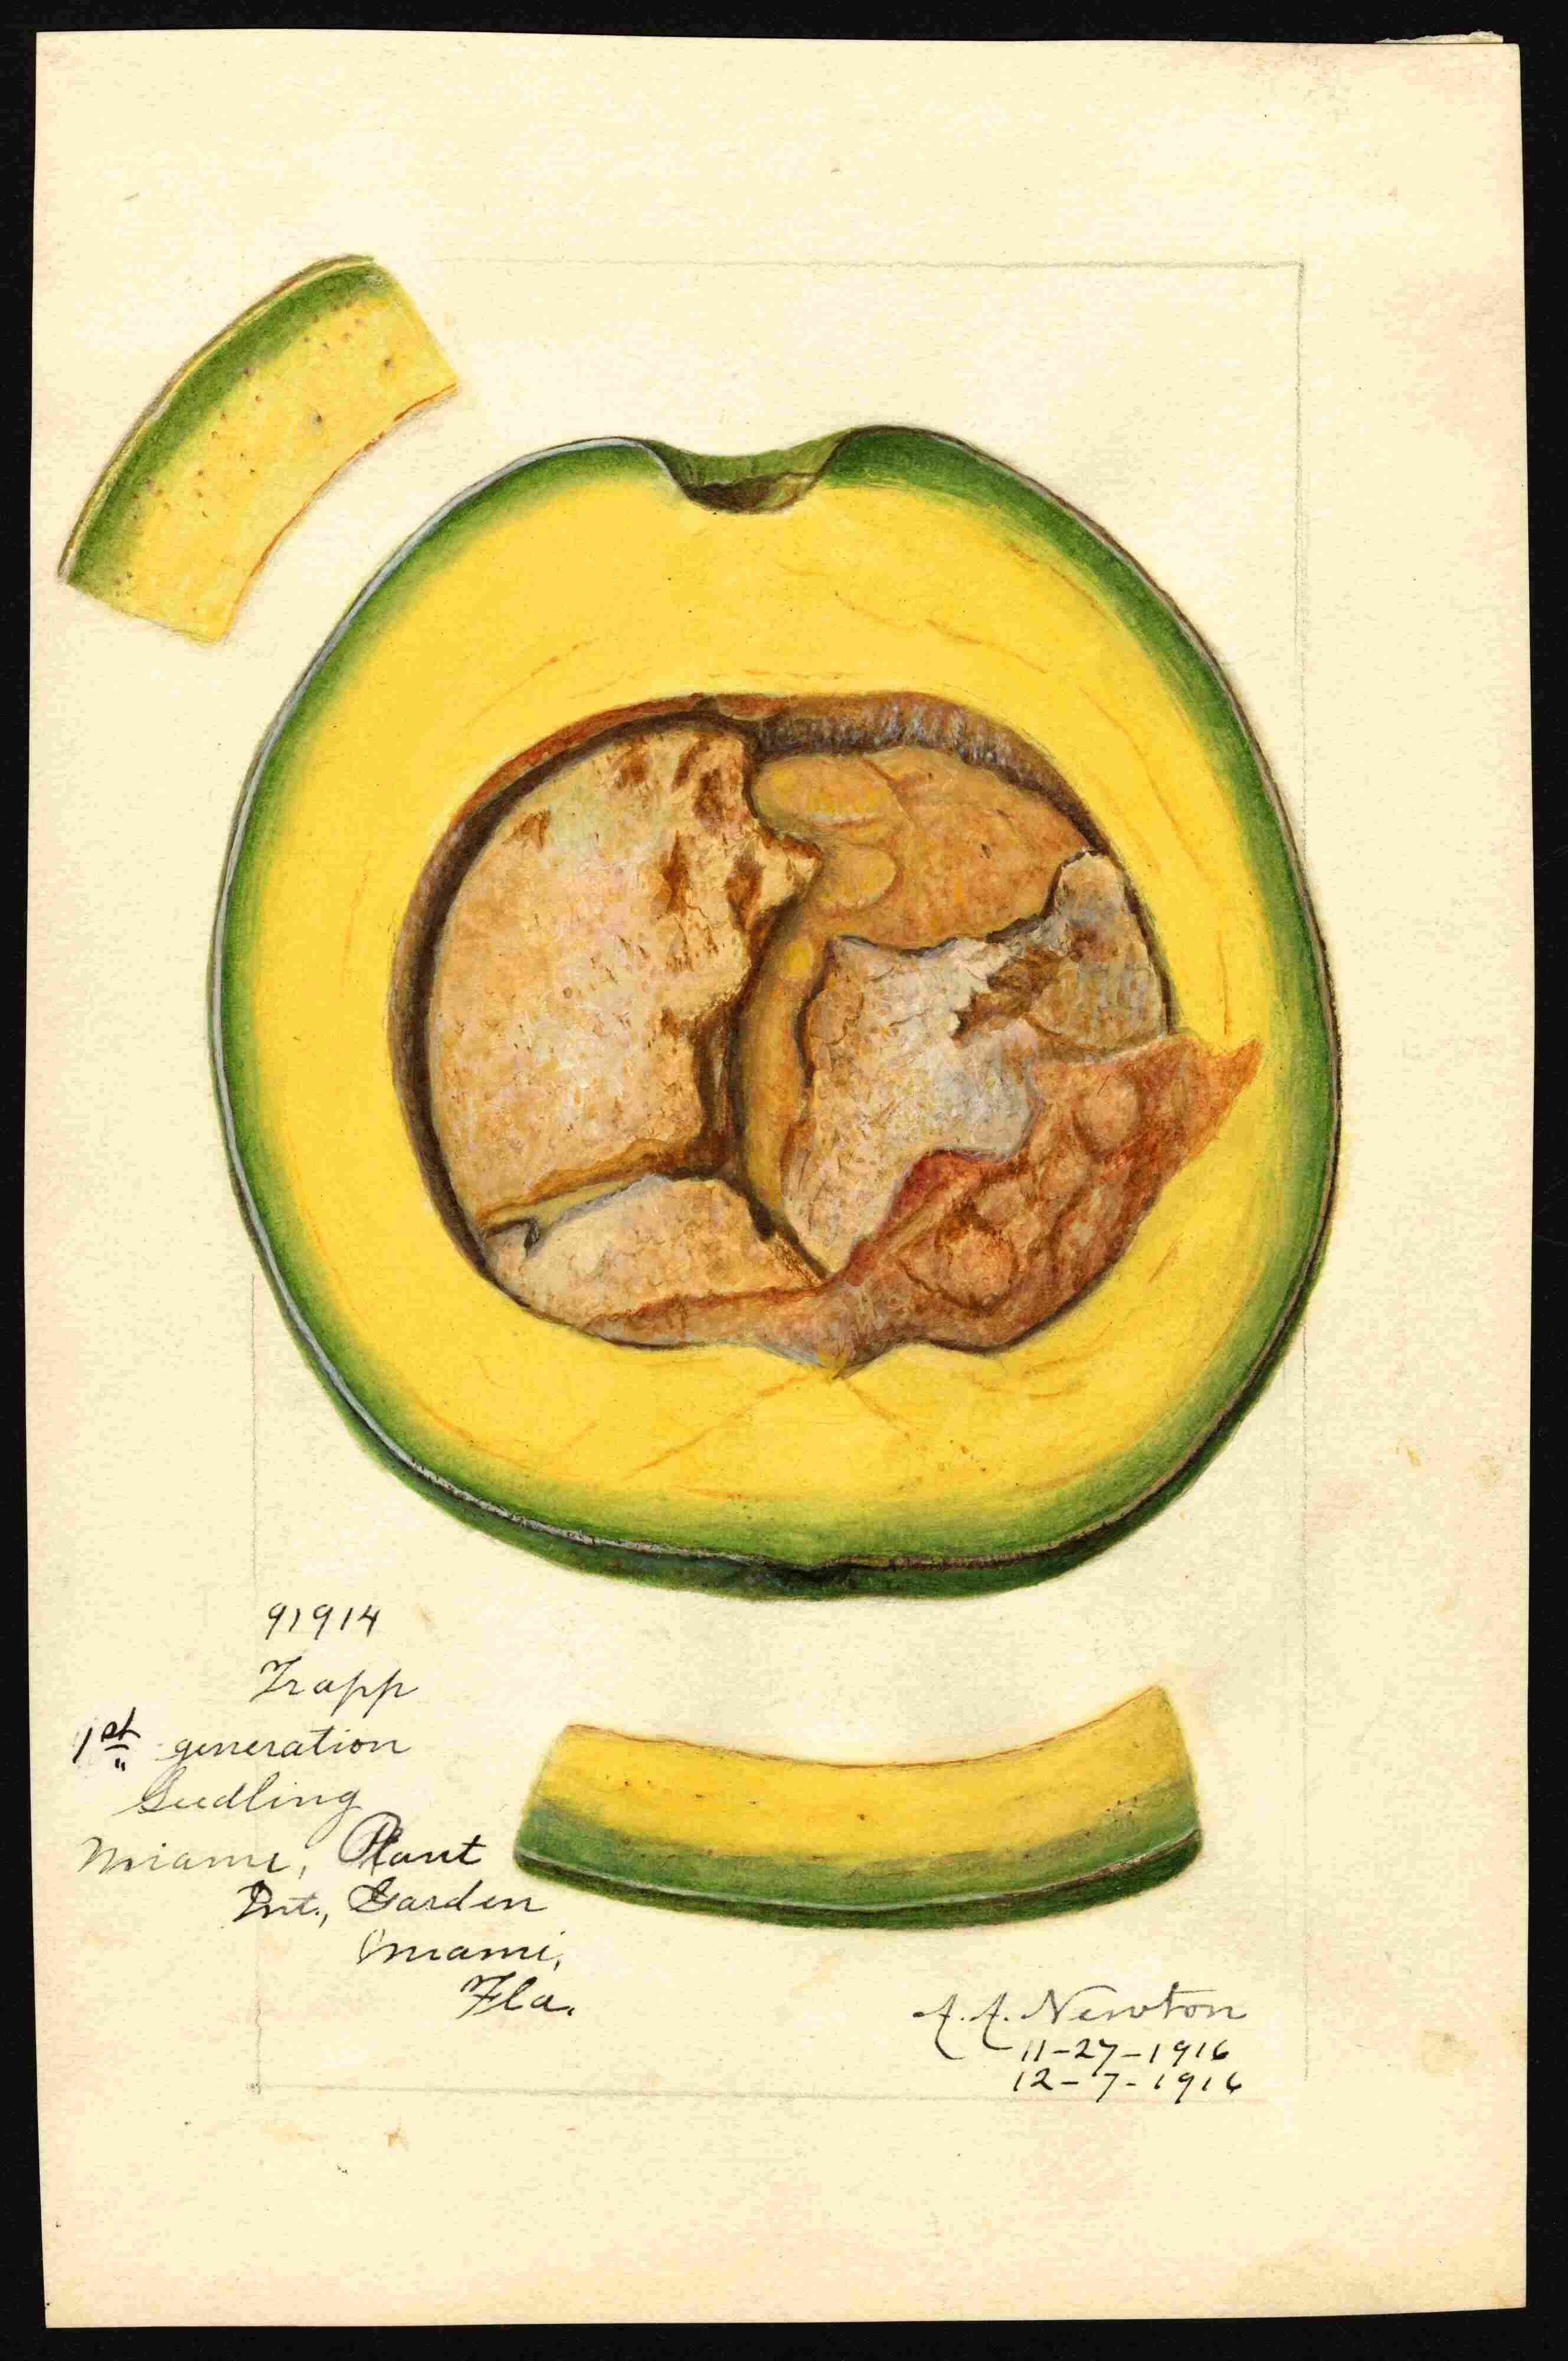 91914
Trapp
1st generation
Seedling
Miami, Plant
Int., Garden
Miami,
Fla.
A. A. Newton
11-27-1916
12-7-1916